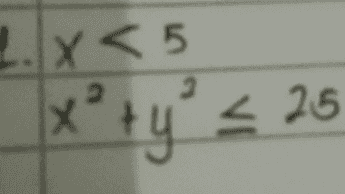 1. x < 5
x² + y² ≤ 25